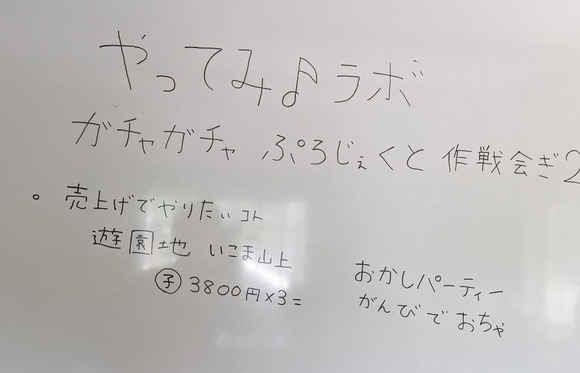 やってみ♪ラボ
ガチャガチャ ぷろじぇくと 作戦会ぎ2
。売上げでやりたいコト
遊園地 いこま山上
㋙ 3800円×3=
おかしパーティー
がんびでおちゃ